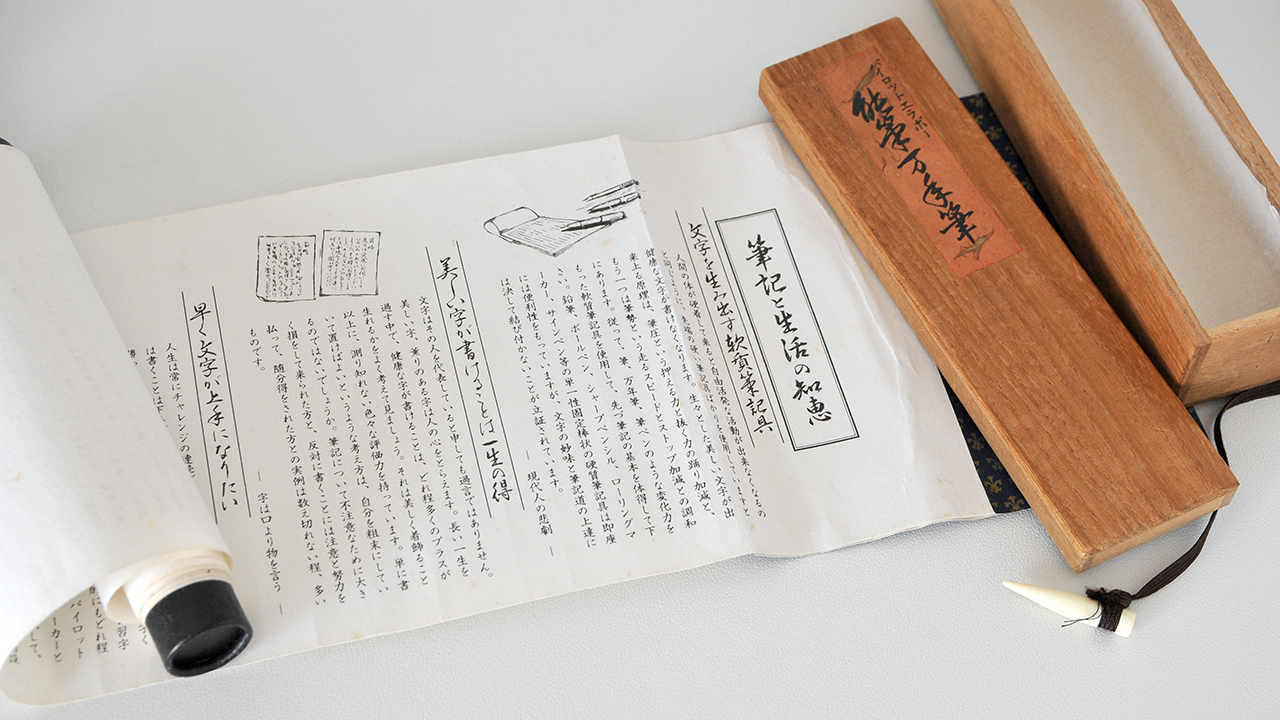 パイロットエラボー
能筆万年筆
筆記と生活の知恵
文字を生み出す軟質筆記具
人間の体が硬着して来ると自由活発な活動が出来なくなるの
と同じように、先端の硬い筆記具ばかりを使用していますと
健康な文字が書けなくなります。生々とした美しい文字が出
来上る原理は、筆圧という押える力と抜く力の踊り加減と、
もう一つは筆勢という走るスピードとストップ加減との調和
にあります。従って、筆、万年筆、筆ペンのような変化力を
もった軟質筆記具を使用して、先づ筆記の基本を体得して下
さい。鉛筆、ボールペン、シャープペンシル、ローリングマ
ーカー、サインペン等の単一性固定棒状の硬質筆記具は即座
には便利性をもっていますが、文字の妙味と筆記道の上達に
は決して結び付かないことが立証されています。
― 現代人の悲劇 ―
美しい字が書けることは一生の得
文字はその人を代表していると申しても過言ではありません。
美しい字、薫りのある字は人の心をとらえます。長い一生を
過す中で、健康な字が書けることは、どれ程多くのプラスが
生れるかをよく考えて見ましょう。それは美しく着飾ること
以上に、測り知れない色々な評価力を持っています。単に書
いて置けばよいというような考え方は、自分を粗末にしてい
るのではないでしょうか。筆記について不注意なために大き
く損をして来られた方と、反対に書くことには注意と努力を
払って、随分得をされた方との実例は数え切れない程、多い
ものです。
― 字は口より物を言う ―
早く文字が上手になりたい
人生は常にチャレンジの連続
は書くことは下